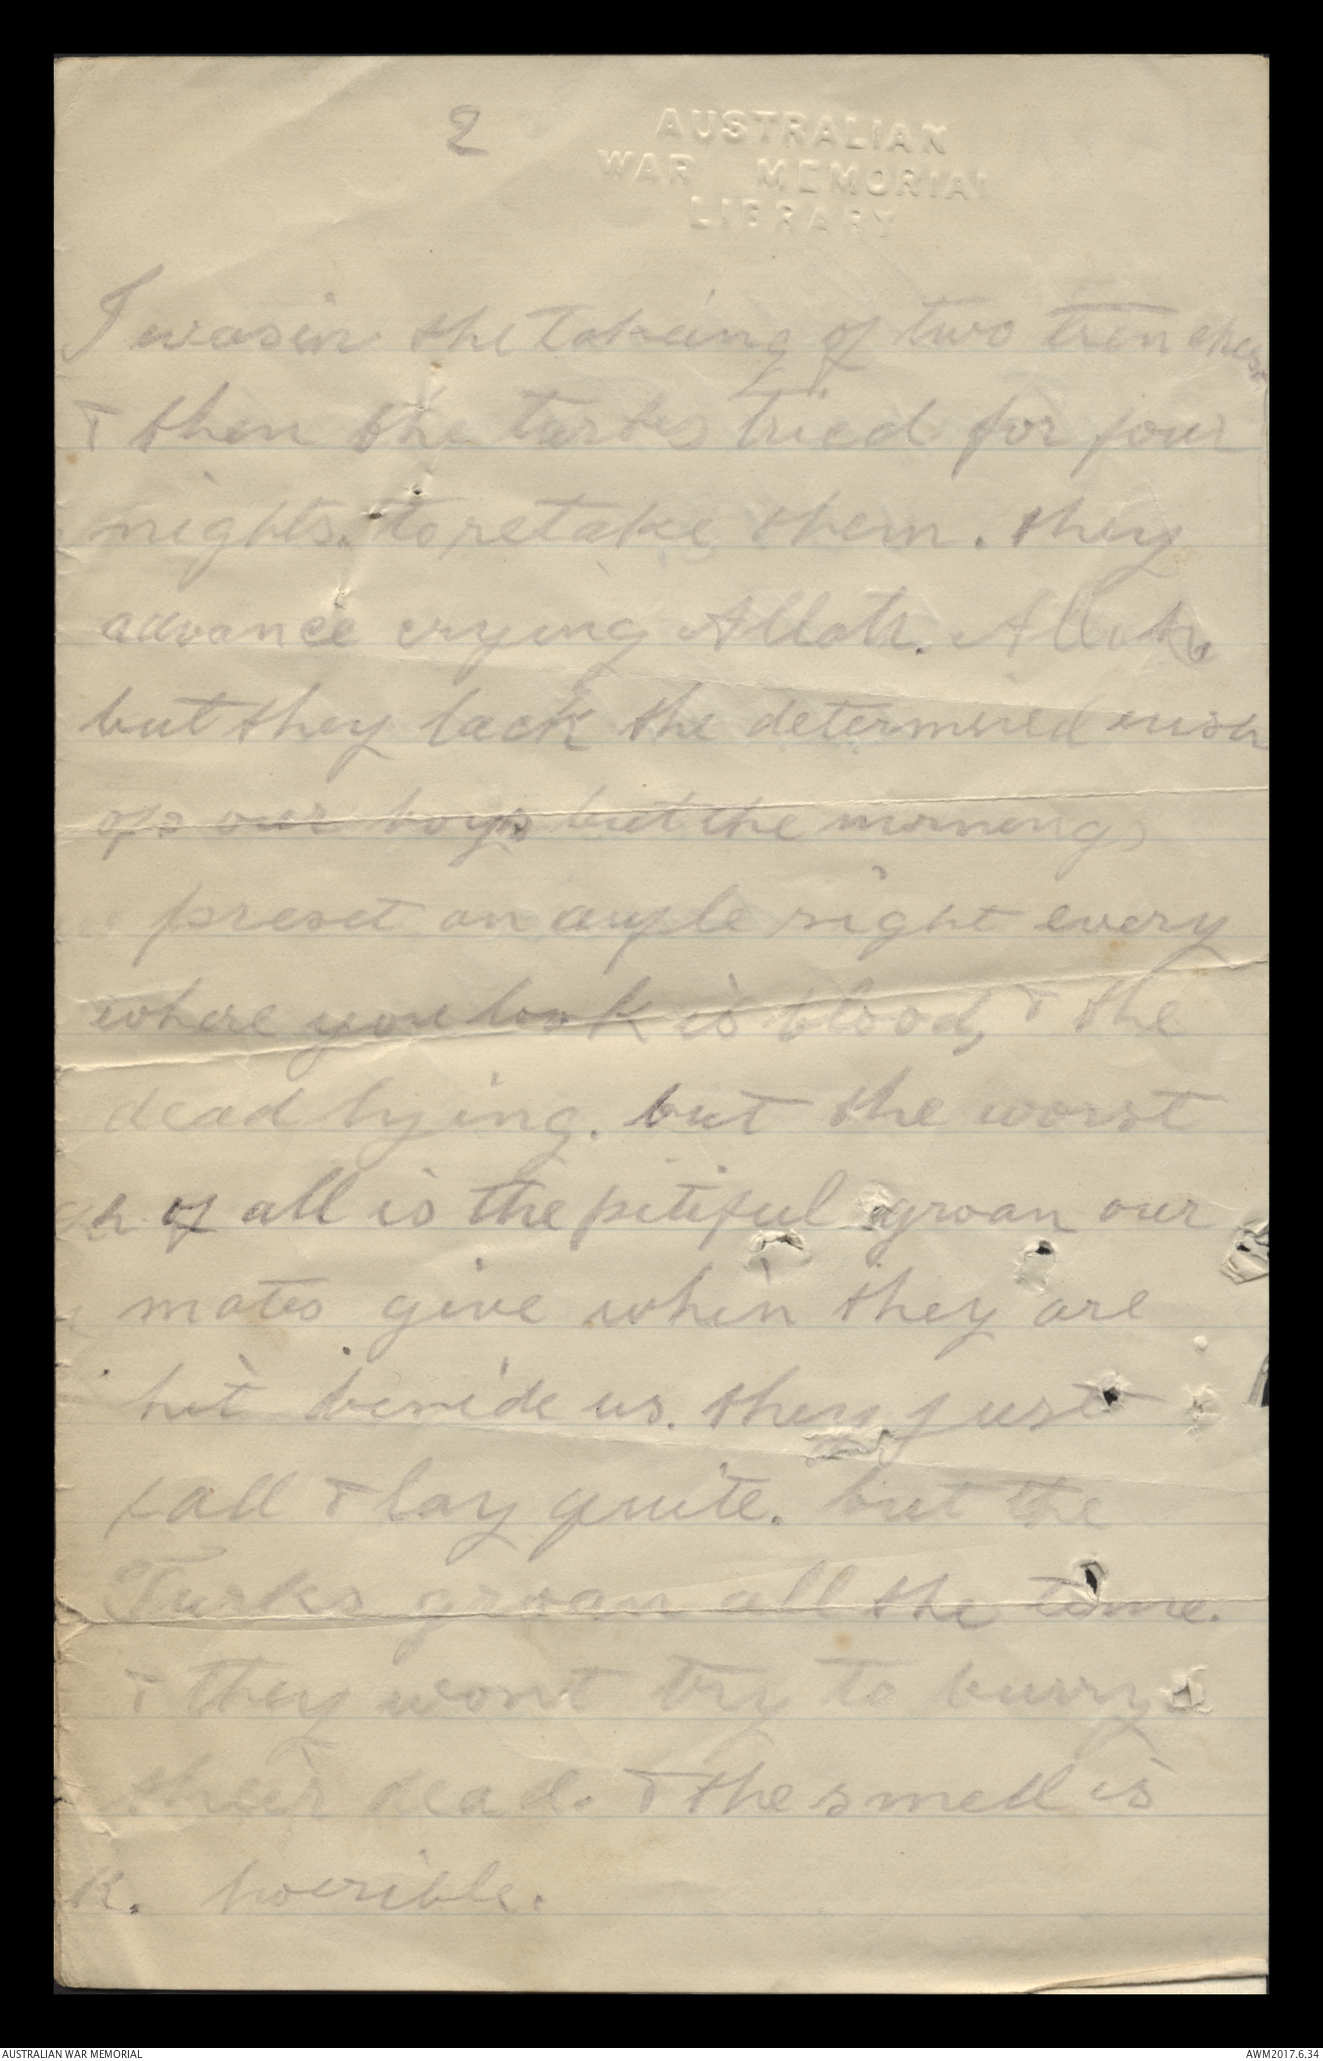 2
AUSTRALIAN
WAR MEMORIAL
LIBRARY
I was in the takeing of two trenches
& then the turks tried for four
nights. to retake them. they
advance crying Allah. Allah
but they lack the determined
of our boys but the morning
preset an sight every
where you look is blood, & the
dead lying. but the worst
of all is the pitiful groan our
mates give when they are
hit beside us. they just
fall & lay quite. but the
Turks groan all the time.
& they wont try to burry
their dead. & the smell is
horrible.
AUSTRALIAN WAR MEMORIAL
AWM2017.6.34